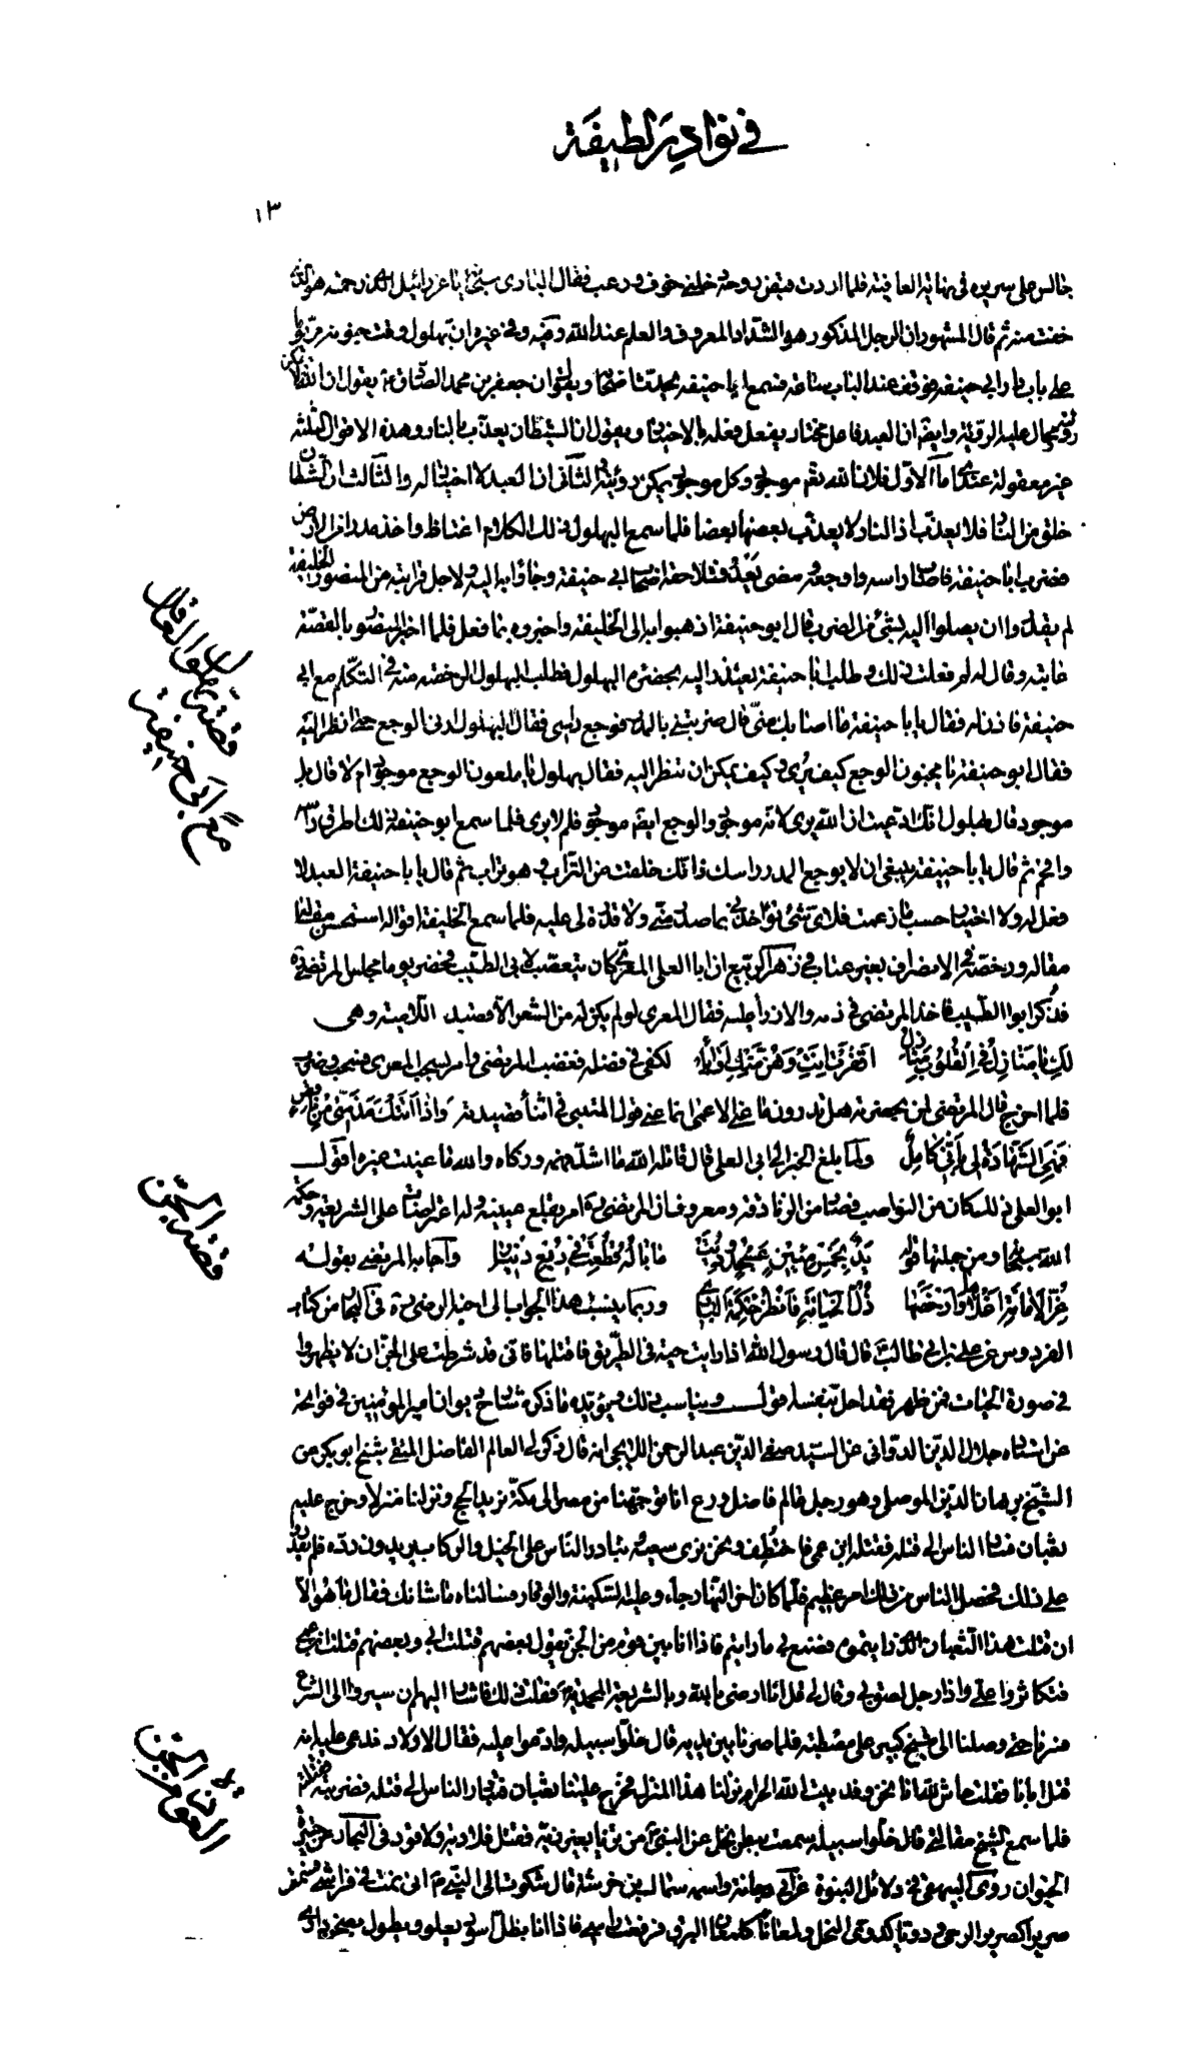 في نوادر لطيفة
١٣
جالس على سريره في نهاية العافية فلما اردت قبض روحه خوف ورعب فقال البارى سبحانه يا عزرائيل الذى رحمته هو الذى
خفت منه ثم قال المشهور ان الرجل المذكور هو الشداد المعروف والعلم عند الله وفيه وفي غيره ان بهلول وقت
على باب دار ابي حنيفه فوقف عند الباب ساعة فسمع ابا حنيفه يحدث اصحابه ويقول ان جعفر بن محمد الصادق ع يقول ان الله لا يمكن
رؤيته محال عليه الرؤية وايضا ان العبد فاعل مختار يفعل فعله بالاختيار ويقول ان الشيطان يعذب بالنار وهذه الاقوال الثلثة
غير معقولة عندى اما الاول فلان الله تعم موجود وكل موجود يمكن رؤيته الثاني ان العبد لا اختيار له والثالث ان الشيطان
خلق من النار فلا يعذب اذ النار لا يعذب بعضها بعضا فلما سمع البهلول ذلك الكلام اغتاظ واخذ مدرا من الارض
فضرب ابا حنيفة فاصاب راسه واوجعه ومضى يعدو فتلاحقه اصحاب ابي حنيفة وجاؤا به اليه ولاجل قرابته من المنصور الخليفة
لم يقدروا ان يصلوا اليه بشئ من الضرب قال ابو حنيفة اذهبوا به الى الخليفة واخبروه بما فعل فلما اخبر المنصور بالقصة
عاتبه وقال له لم فعلت ذلك وطلب ابا حنيفة يعتذر اليه بحضرة البهلول فطلب البهلول الرخصة منه في التكلم مع ابي
حنيفة فاذن له فقال يا ابا حنيفة ما اصابك منى قال ضربتني بالمدر فوجع راسى فقال البهلول ارنى الوجع حتى انظر اليه
فقال ابو حنيفة يا مجنون الوجع كيف يُرى وكيف يمكن ان تنظر اليه فقال بهلول يا ملعون الوجع موجود ام لا قال بل
موجود قال بهلول انك ادعيت ان الله يرى لانه موجود والوجع ايضا موجود فلم لا يرى فلما سمع ابو حنيفة ذلك اطرق راسه
وافحم ثم قال يا ابا حنيفة ينبغي ان لا يوجع المدر راسك فانك خلقت من التراب وهو تراب ثم قال يا ابا حنيفة العبد لا
فعل له ولا اختيار حسب ما زعمت فلاى شئ تؤاخذنى بما صدر منى ولا قدرة لى عليه فلما سمع الخليفة اقواله استحسن
مقاله ورخصه في الانصراف بغير عتاب في زهر الربيع ان ابا العلى المعرى كان يتعصب لابي الطيب فحضر يوما مجلس المرتضى ره
فذُكر ابو الطيب فاخذ المرتضى في ذمه والازراء عليه فقال المعرى لو لم يكن له من الشعر الا قصيدته اللامية وهى
لكِ يا مَنازِلُ فِى القُلُوبِ مَنازِل اَقفَرتِ اَنتِ وَهُنَّ مِنكِ اَواهِلُ لكفى في فضله فغضب المرتضى وامر بسحب المعرى فسحب وضرب
فلما اخرج قال المرتضى لمن بحضرته هل تدرون ما عنى الاعمى انما عنى قول المتنبى في اثناء قصيدته وَاِذا اَتَتكَ مَذَمَّتى مِن ناقِصٍ
فَهِىَ الشَّهادَةُ لى بِاَنّى كامِلٌ ولما بلغ الخبر الى ابي العلى قال قاتله الله ما اشد فهمه وذكاه والله ما عنيت غيره اقول
ابو العلى ذلك كان من النواصب من الزنادقة ومعروف ان المرتضى ره امر بقلع عينيه وله اعتراضات على الشريعة وحكمة
الله سبحانه ومن جملتها قوله يَدٌ بِخَمسِ مِئينٍ عَسجَدٍ وُدِيَت ما بالُها قُطِعَت في رُبعِ دينارٍ واجابه المرتضى بقوله
عِزُّ الاَمانَةِ اَغلاها وَاَرخَصَها ذُلُّ الخِيانَةِ فَانظُر حِكمَةَ البارى وربما ينسب هذا الجواب الى اخيه الرضى ره في البحار من كتاب
الفردوس عن على بن ابي طالب ع قال قال رسول الله اذا رايت حية في الطريق فاقتلها فاني قد شرطت على الجن ان لا يظهروا
في صورة الحيات فمن ظهر فقد احل بنفسه قول ويناسب ذلك ويؤيده ما ذكره شارح ديوان امير المؤمنين في فواتحه
عن استاده جلال الدين الدوانى عن السيد صفى الدين عبد الرحمن اللايجى انه قال ذكر لى العالم الفاضل المتقى شيخ ابو بكر عن
الشيخ برهان الدين الموصلى وهو رجل عالم فاضل ورع انا توجهنا من مصر الى مكة نريد الحج ونزلنا منزلا وخرج عليه
ثعبان فثار الناس الى قتله فقتله ابن عمى فاختُطِف ونحن نرى سعيه فتبادر الناس على الخيل والركاب يريدون رده فلم يقدروا
على ذلك فحصل للناس من ذلك امر عظيم فلما كان اخر النهار جاء وعليه السكينة والوقار فسالناه ما شانك فقال ما هو الا
ان قتلت هذا الثعبان الذى رايتموه فصنع بي ما رايتم فاذا انا بين قوم من الجن يقول بعضهم قتلت ابي وبعضهم قتلت ابن عمى
فتكاثروا على واذا رجل لصق بي وقال لى قل انا ارضى بالله وبالشريعة المحمدية فقلت ذلك فاشار اليهم ان سيروا الى الشرع
فسرنا حتى وصلنا الى شيخ كبير على مصطبة فلما صرنا بين يديه قال خلوا سبيله وادعوا عليه فقال الاولاد ندعى عليه انه
قتل ابانا فقلت حاش لله انا نحن وفد بيت الله الحرام نزلنا هذا المنزل فخرج علينا ثعبان فتبادر الناس الى قتله فضربته فقتلته
فلما سمع الشيخ مقالتى قال خلوا سبيله سمعت ببطن نخلة عن النبي ص من تزيا بغير زيه فقتل فلا دية ولا قود في البحار عن حيوة
الحيوان روى البيهقى في دلائل النبوة عن ابي دجانة واسمه سماك بن خرشة قال شكوت الى النبي ص انى نمت في فراشى فسمعت
صريرا كصرير الرحى ودويا كدوى النحل ولمعانا كلمعان البرق فرفعت راسى فاذا انا بظل اسود يعلو ويطول بصحن دارى
قصة بهلول العاقل
مع ابى حنيفة
قصة الجن